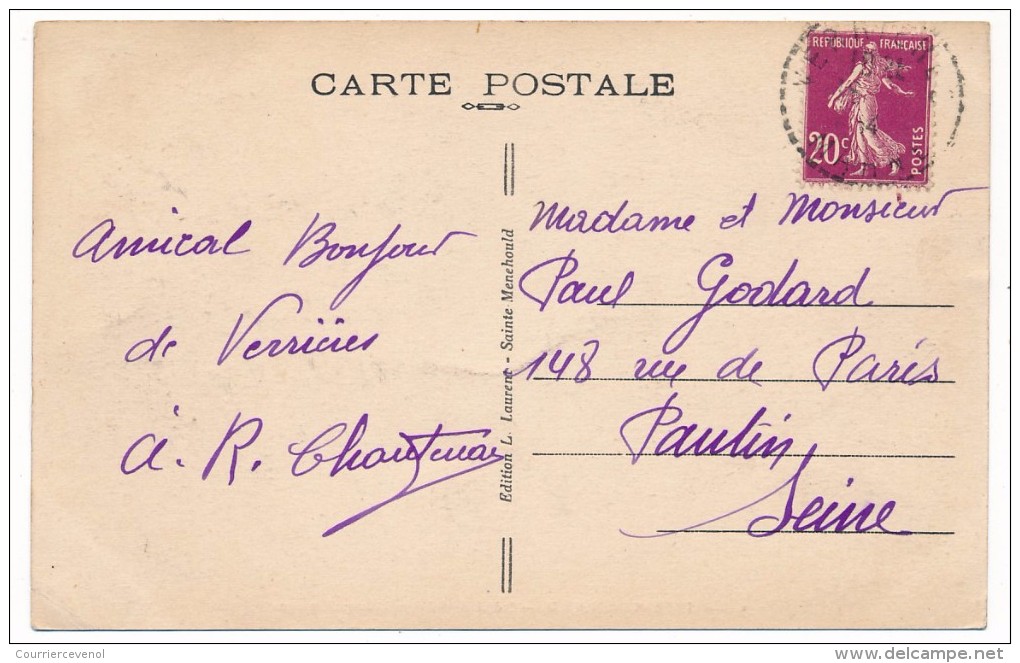 CARTE POSTALE
REPUBLIQUE FRANÇAISE
20c
POSTES
Amical Bonjour
de Verrières
A. R.
Edition L. Laurent - Sainte Menehould
Madame et Monsieur
Paul Godard
148 rue de Paris
Pantin
Seine
Courriercevenol
www.delcampe.net